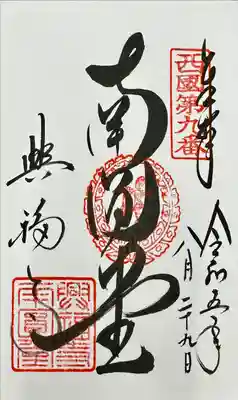 奉拝
西國第九番
令和五年
八月二十九日
南円堂
興福寺
興福寺南円堂